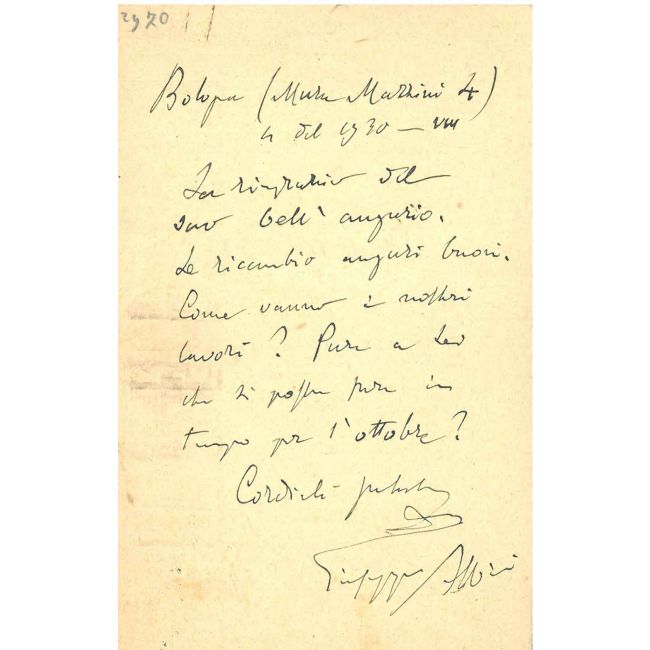 2970
Bologna (Mura Mazzini 4)
4 del 1930 – VIII
La ringrazio del
suo bell' augurio.
Le ricambio auguri buoni.
Come vanno i nostri
lavori? Pare a Lei
che si possa fare in
tempo per l'ottobre?
Cordiali saluti
Giuseppe Albini